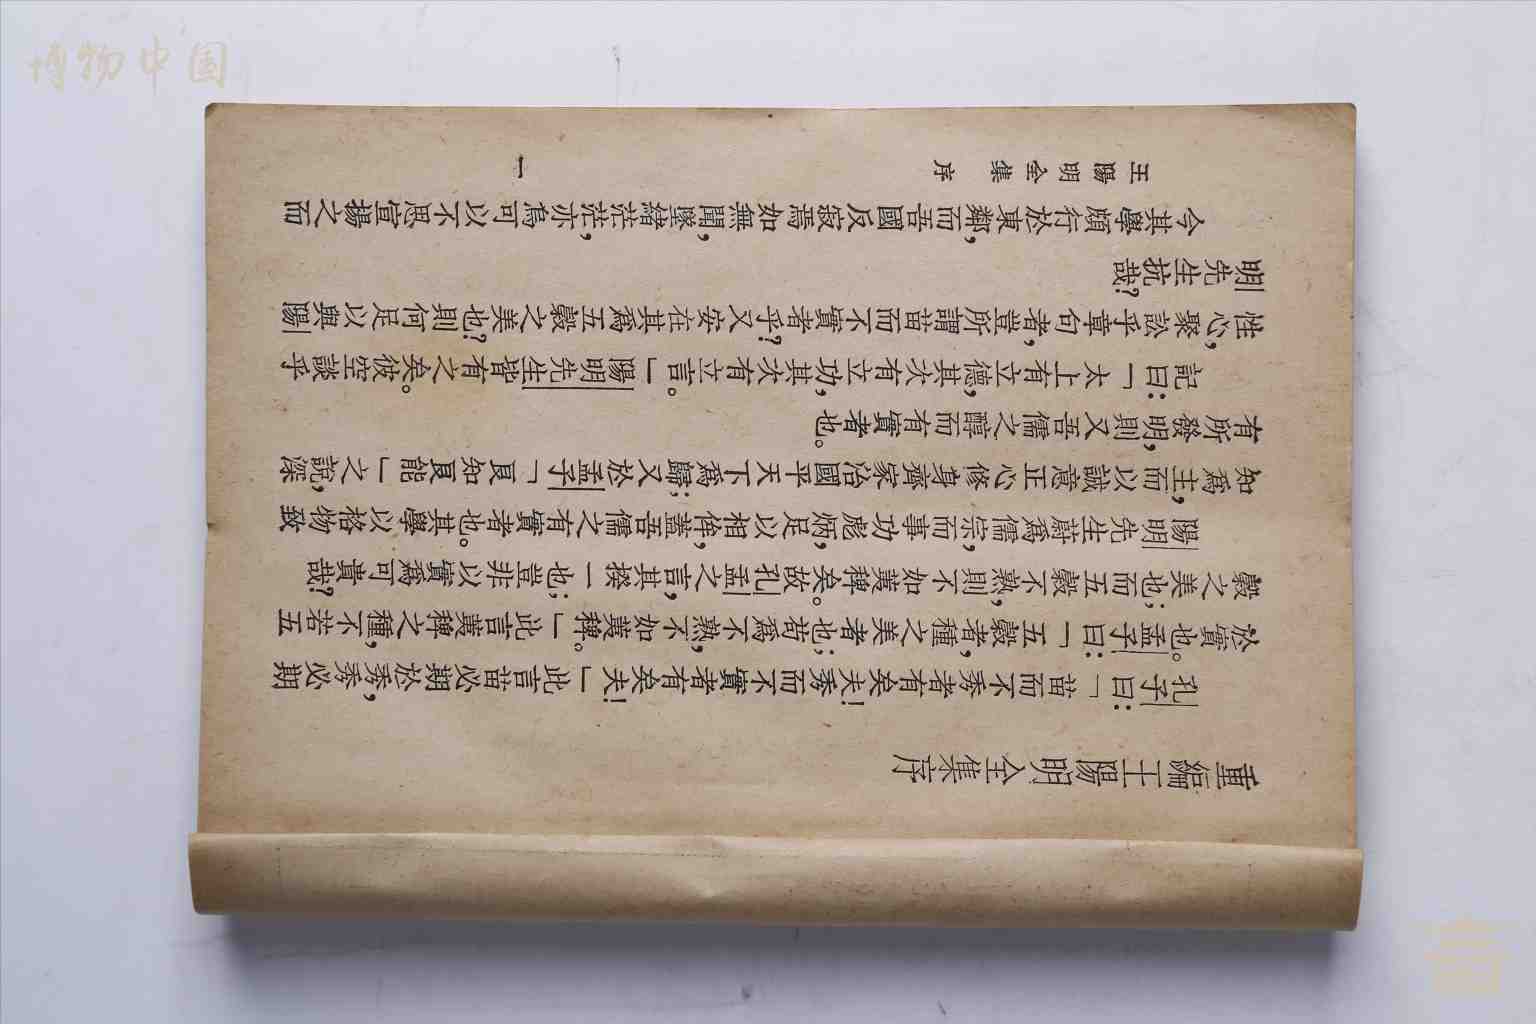 重編王陽明全集序
孔子曰:「苗而不秀者有矣夫!秀而不實者有矣夫!」此言苗必期於秀,秀必期
於實也。孟子曰:「五穀者,種之美者也;苟爲不熟,不如荑稗。」此言荑稗之種,不若五
穀之美也;而五穀不熟,則不如荑稗矣。故孔孟之言,其揆一也;豈非以實爲可貴哉?
陽明先生蔚爲儒宗,而事功彪炳,足以相侔,蓋吾儒之有實者也。其學以格物致
知爲主,而以誠意正心修身齊家治國平天下爲歸;又於孟子「良知良能」之說,深
有所發明,則又吾儒之醇而有實者也。
記曰:「太上有立德,其次有立功,其次有立言。」陽明先生皆有之矣。彼空談乎
性心,聚訟乎章句者,豈所謂苗而不實者乎?又安在其爲五穀之美也?則何足以與陽
明先生抗哉?
今其學頗行於東鄰,而吾國反寂焉如無聞,墜緒茫茫,亦烏可以不思宣揚之而
王陽明全集 序
一
博物中国